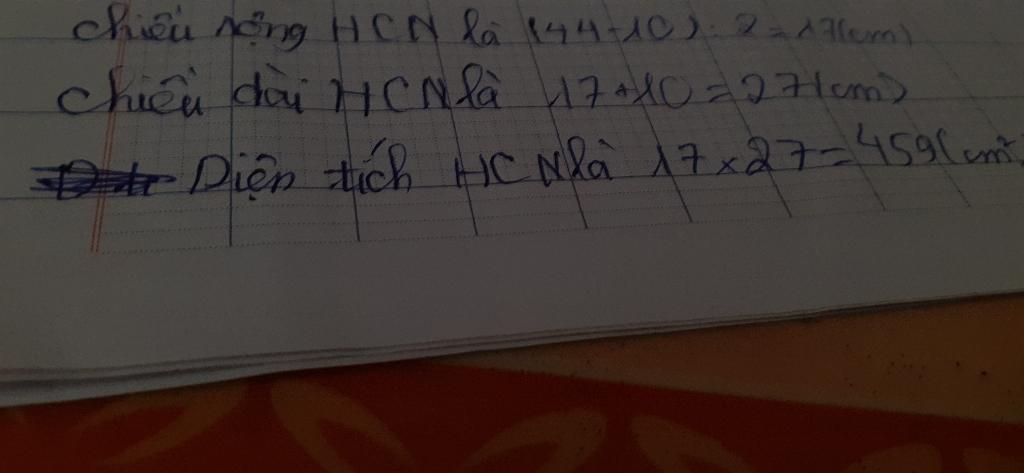 Chiều rộng HCN là (44-10): 2=17(cm)
Chiều dài HCN là 17+10=27(cm)
Diện tích HCN là 17×27=459(cm²